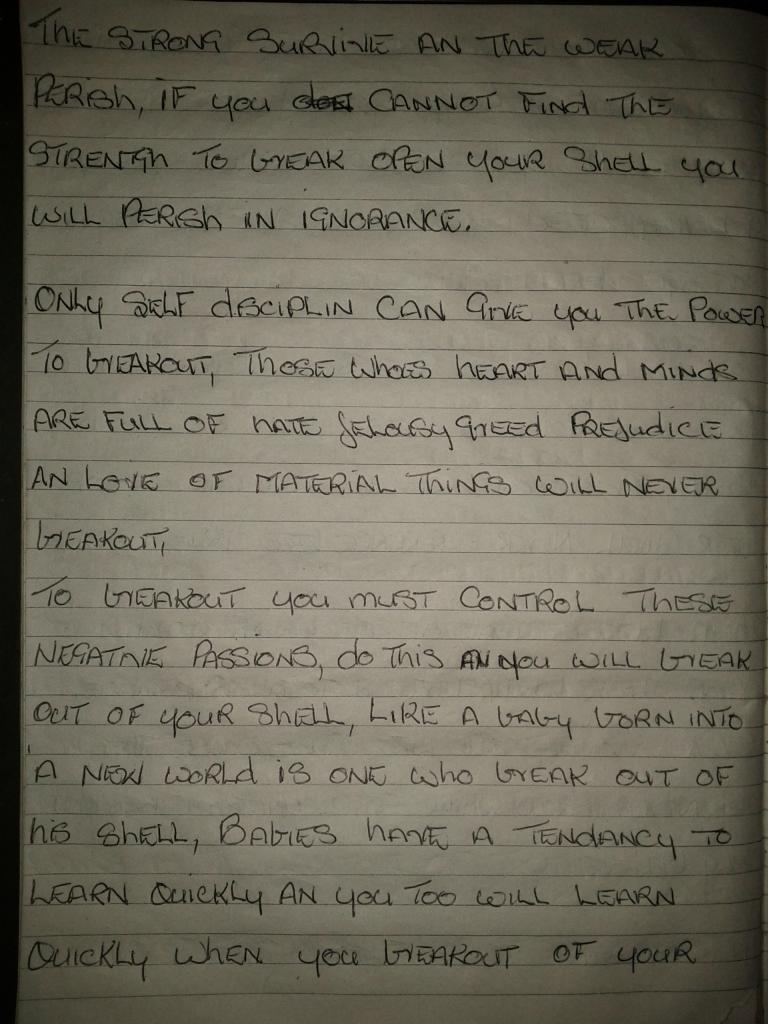 THE STRONG SURVIVE AN THE WEAK
PERISH, IF you CANNOT FINd THE
STRENTGh TO bREAK OPEN youR ShELL you
WILL PERISh IN IGNORANCE.
ONLy SELF dISCIPLIN CAN GIVE you THE POWER
TO bREAKOUT, THOSE WhOES hEART ANd MINdS
ARE FULL OF hATE JELOUSy GREEd PREJudICE
AN LOVE OF MATERIAL ThINGS WILL NEVER
bREAKOUT,
TO bREAKOUT you MUST CONTROL THESE
NEGATIVE PASSIONS, do This AN you WILL bREAK
OUT OF youR ShELL, LIKE A bAby bORN INTO
A NEW WORLd IS ONE Who bREAK OUT OF
hIS ShELL, BAbIES hAVE A TENdANCy TO
LEARN QuICKLy AN you TOO WILL LEARN
QuICKLy WhEN you bREAKOUT OF youR